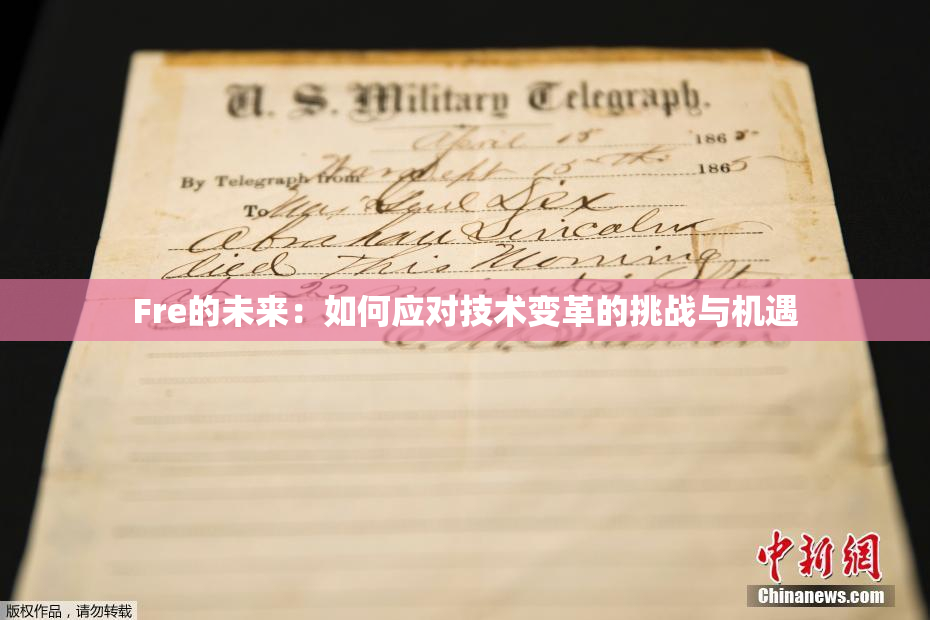 U. S. Military Telegraph.
April 15 1865
By Telegraph from War Dept 15th 1865
To Maj Genl Dix
Abraham Lincoln
died This Morning
at 22 minutes after
Fre的未来：如何应对技术变革的挑战与机遇
E. M. Stanton
中新网
Chinanews.com
版权作品，请勿转载